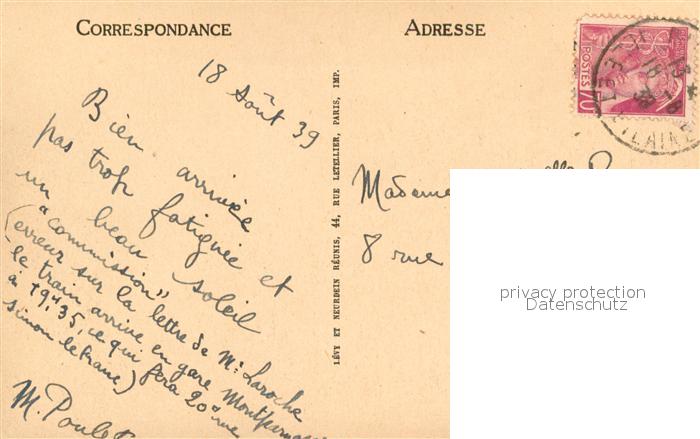 CORRESPONDANCE
ADRESSE
18 Août 39
Bien arrivée
pas trop fatiguée et
un beau soleil
"commission"
(erreur sur la lettre de M. Laroche
le train arrive en gare Montparnasse
à 19H35, ce qui fera 20h rue
Simon lefranc)
M. Poulet
LÉVY ET NEURDEIN RÉUNIS, 44, RUE LETELLIER, PARIS, IMP.
POSTES
70
Madame
8 rue
privacy protection
Datenschutz